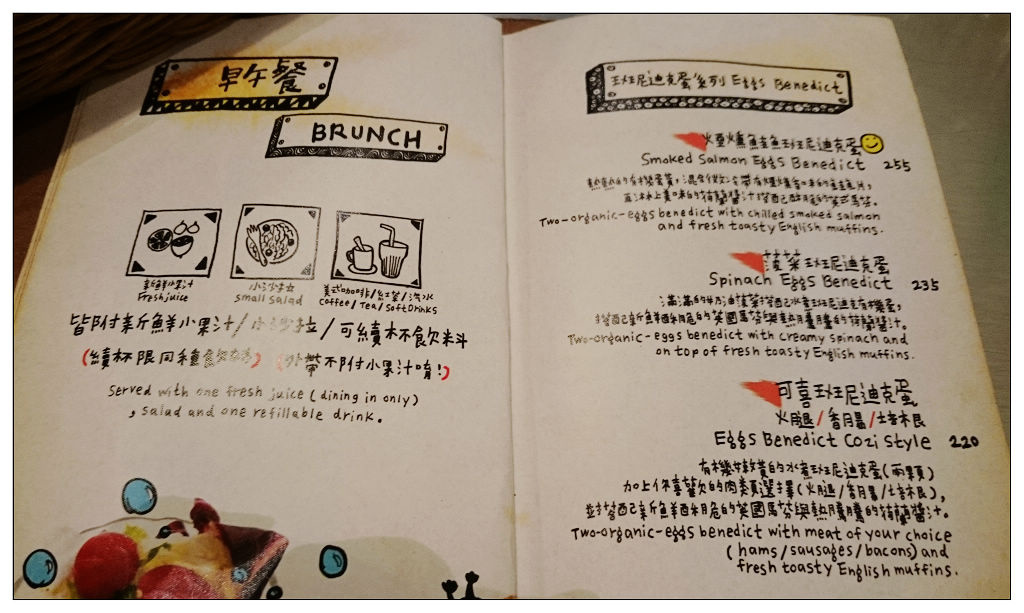 早午餐
BRUNCH
新鮮小果汁
Fresh juice
小沙拉
small salad
美式咖啡/紅茶/汽水
Coffee/Tea/SoftDrinks
皆附新鮮小果汁/小沙拉/可續杯飲料
(續杯限同種飲料) (外帶不附小果汁唷!)
Served with one fresh juice (dining in only)
, salad and one refillable drink.
班尼迪克蛋系列 Eggs Benedict
煙燻鮭魚班尼迪克蛋
Smoked Salmon Eggs Benedict 255
Two-organic-eggs benedict with chilled smoked salmon
and fresh toasty English muffins.
菠菜班尼迪克蛋
Spinach Eggs Benedict 235
滿滿的奶油菠菜搭配水煮班尼迪克有機蛋,
搭配新鮮酥脆的英國馬芬與熱騰騰的荷蘭醬汁。
Two-organic-eggs benedict with creamy spinach and
on top of fresh toasty English muffins.
可喜班尼迪克蛋
火腿/香腸/培根
Eggs Benedict Cozi Style 220
有機軟黃的水煮班尼迪克蛋(兩顆)
加上你喜歡的肉類選擇(火腿/香腸/培根),
並搭配新鮮酥脆的英國馬芬與熱騰騰的荷蘭醬汁。
Two-organic-eggs benedict with meat of your choice
(hams/sausages/bacons) and
fresh toasty English muffins.